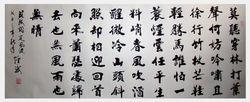 莫聽穿林打葉
聲何妨吟嘯且
徐行竹杖芒鞋
輕勝馬誰怕一
蓑煙雨任平生
料峭春風吹酒
醒微冷山頭斜
照却相迎回首
向來蕭瑟處歸
去也無風雨也
無晴